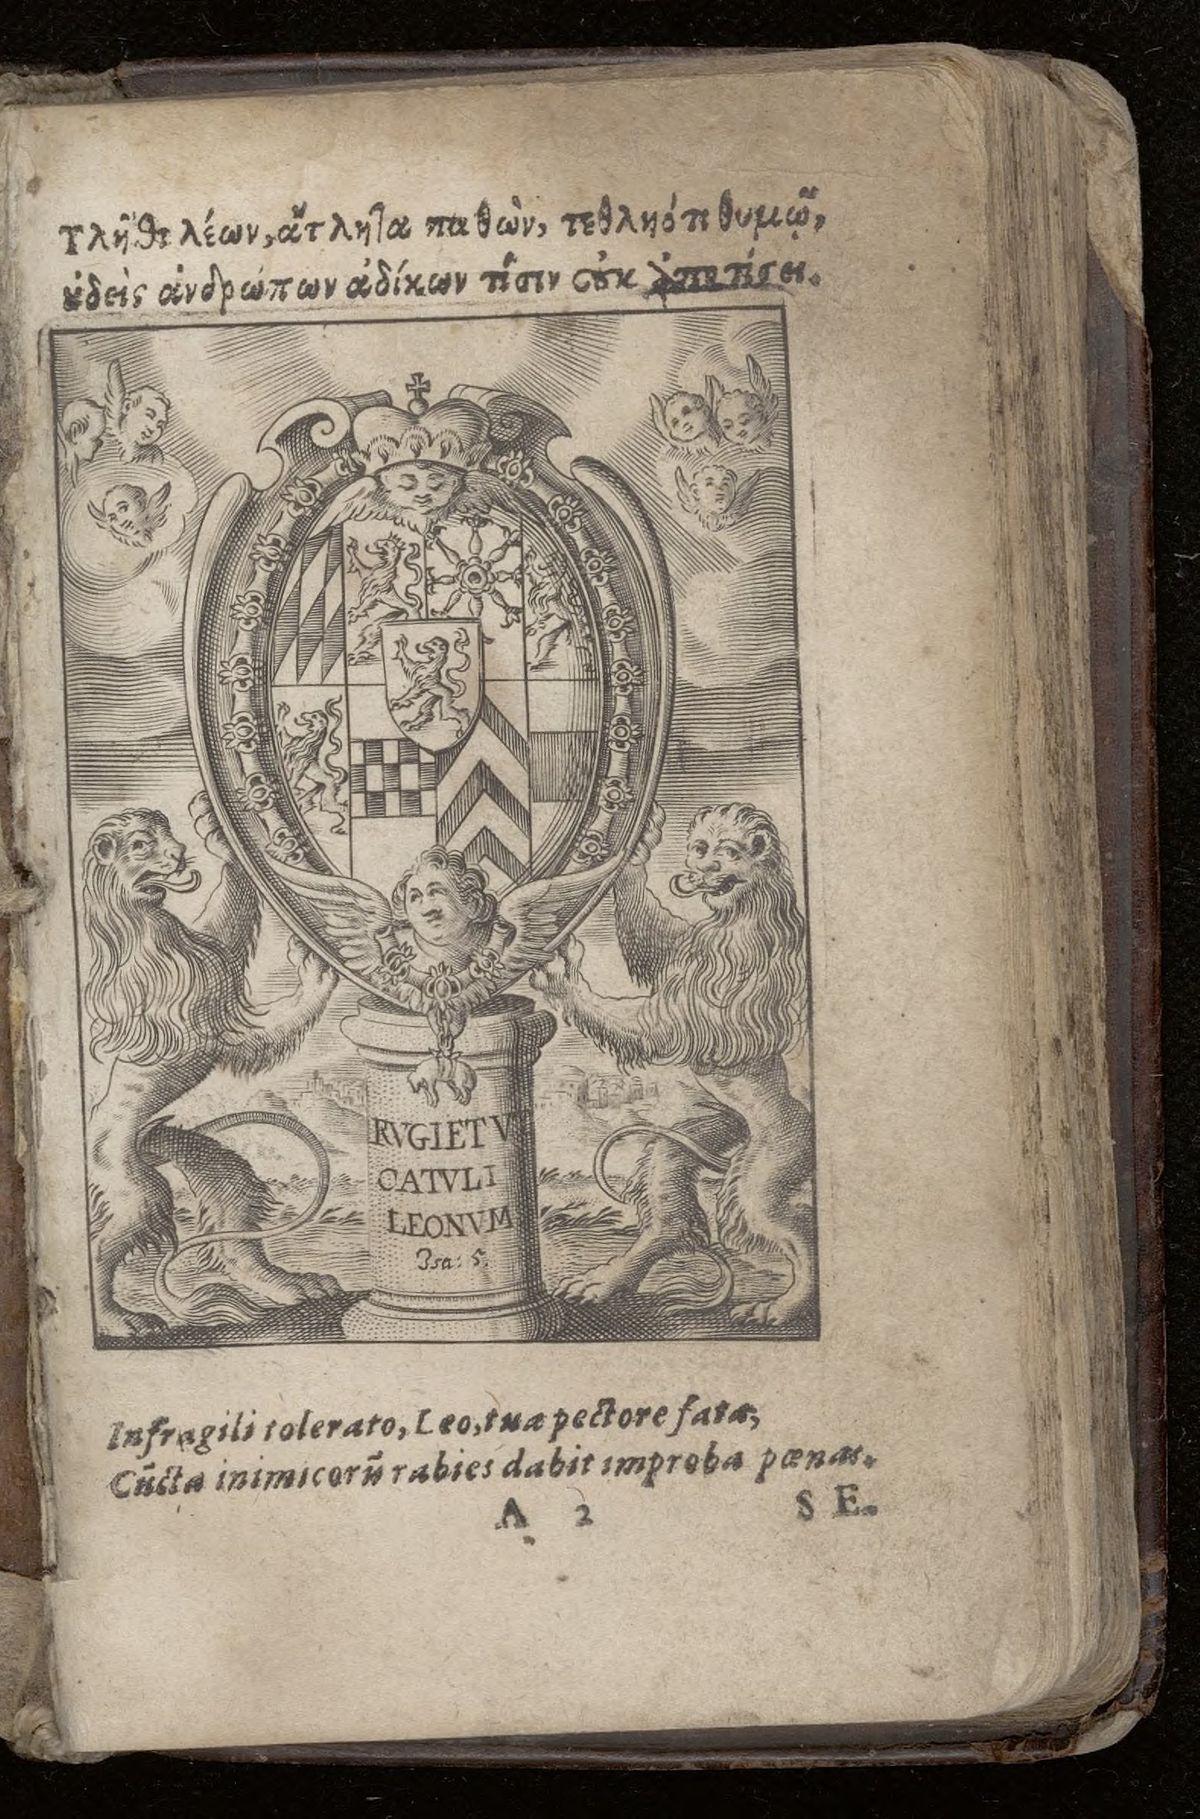 Τλῆθι λέων, ἄτλητα παθὼν, τετληότι θυμῷ,
οὐδεὶς ἀνθρώπων ἀδίκων τίσιν οὐκ ἀποτίσει.
RVGIET VT
CATVLI
LEONVM
Isa: 5.
Infragili tolerato, Leo, tua pectore fata,
Cūcta inimicorū rabies dabit improba pœnas.
A 2
SE.